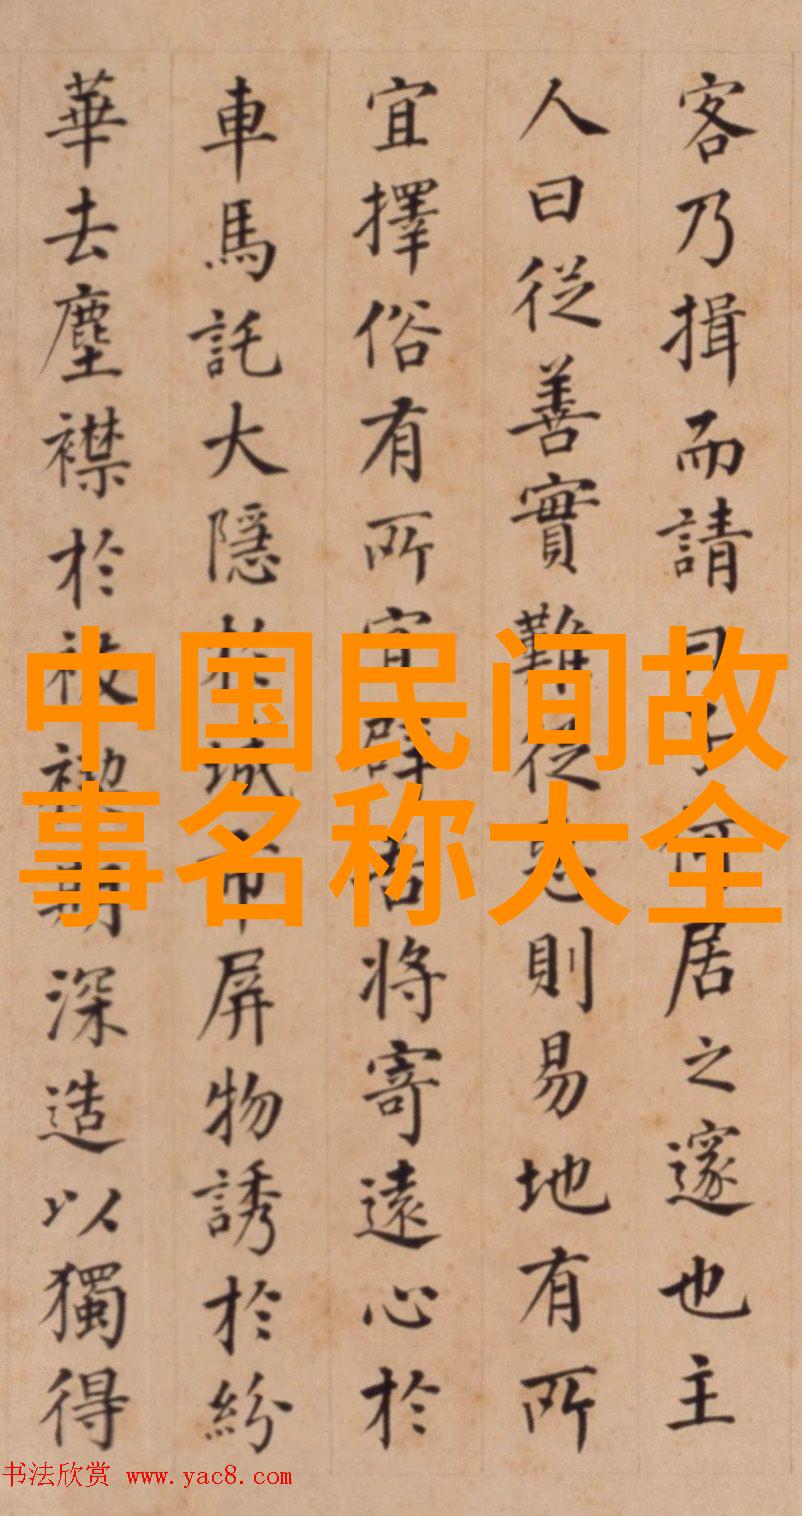 客乃揖而請曰子何居之邃也主
人曰從善實難從惡則易地有所
宜擇俗有所宜辟將寄遠心於
車馬託大隱於城市屏物誘於紛
華去塵襟於祓禊期深造以獨得
中国民间故
事名称大全
书法欣赏 www.yac8.com